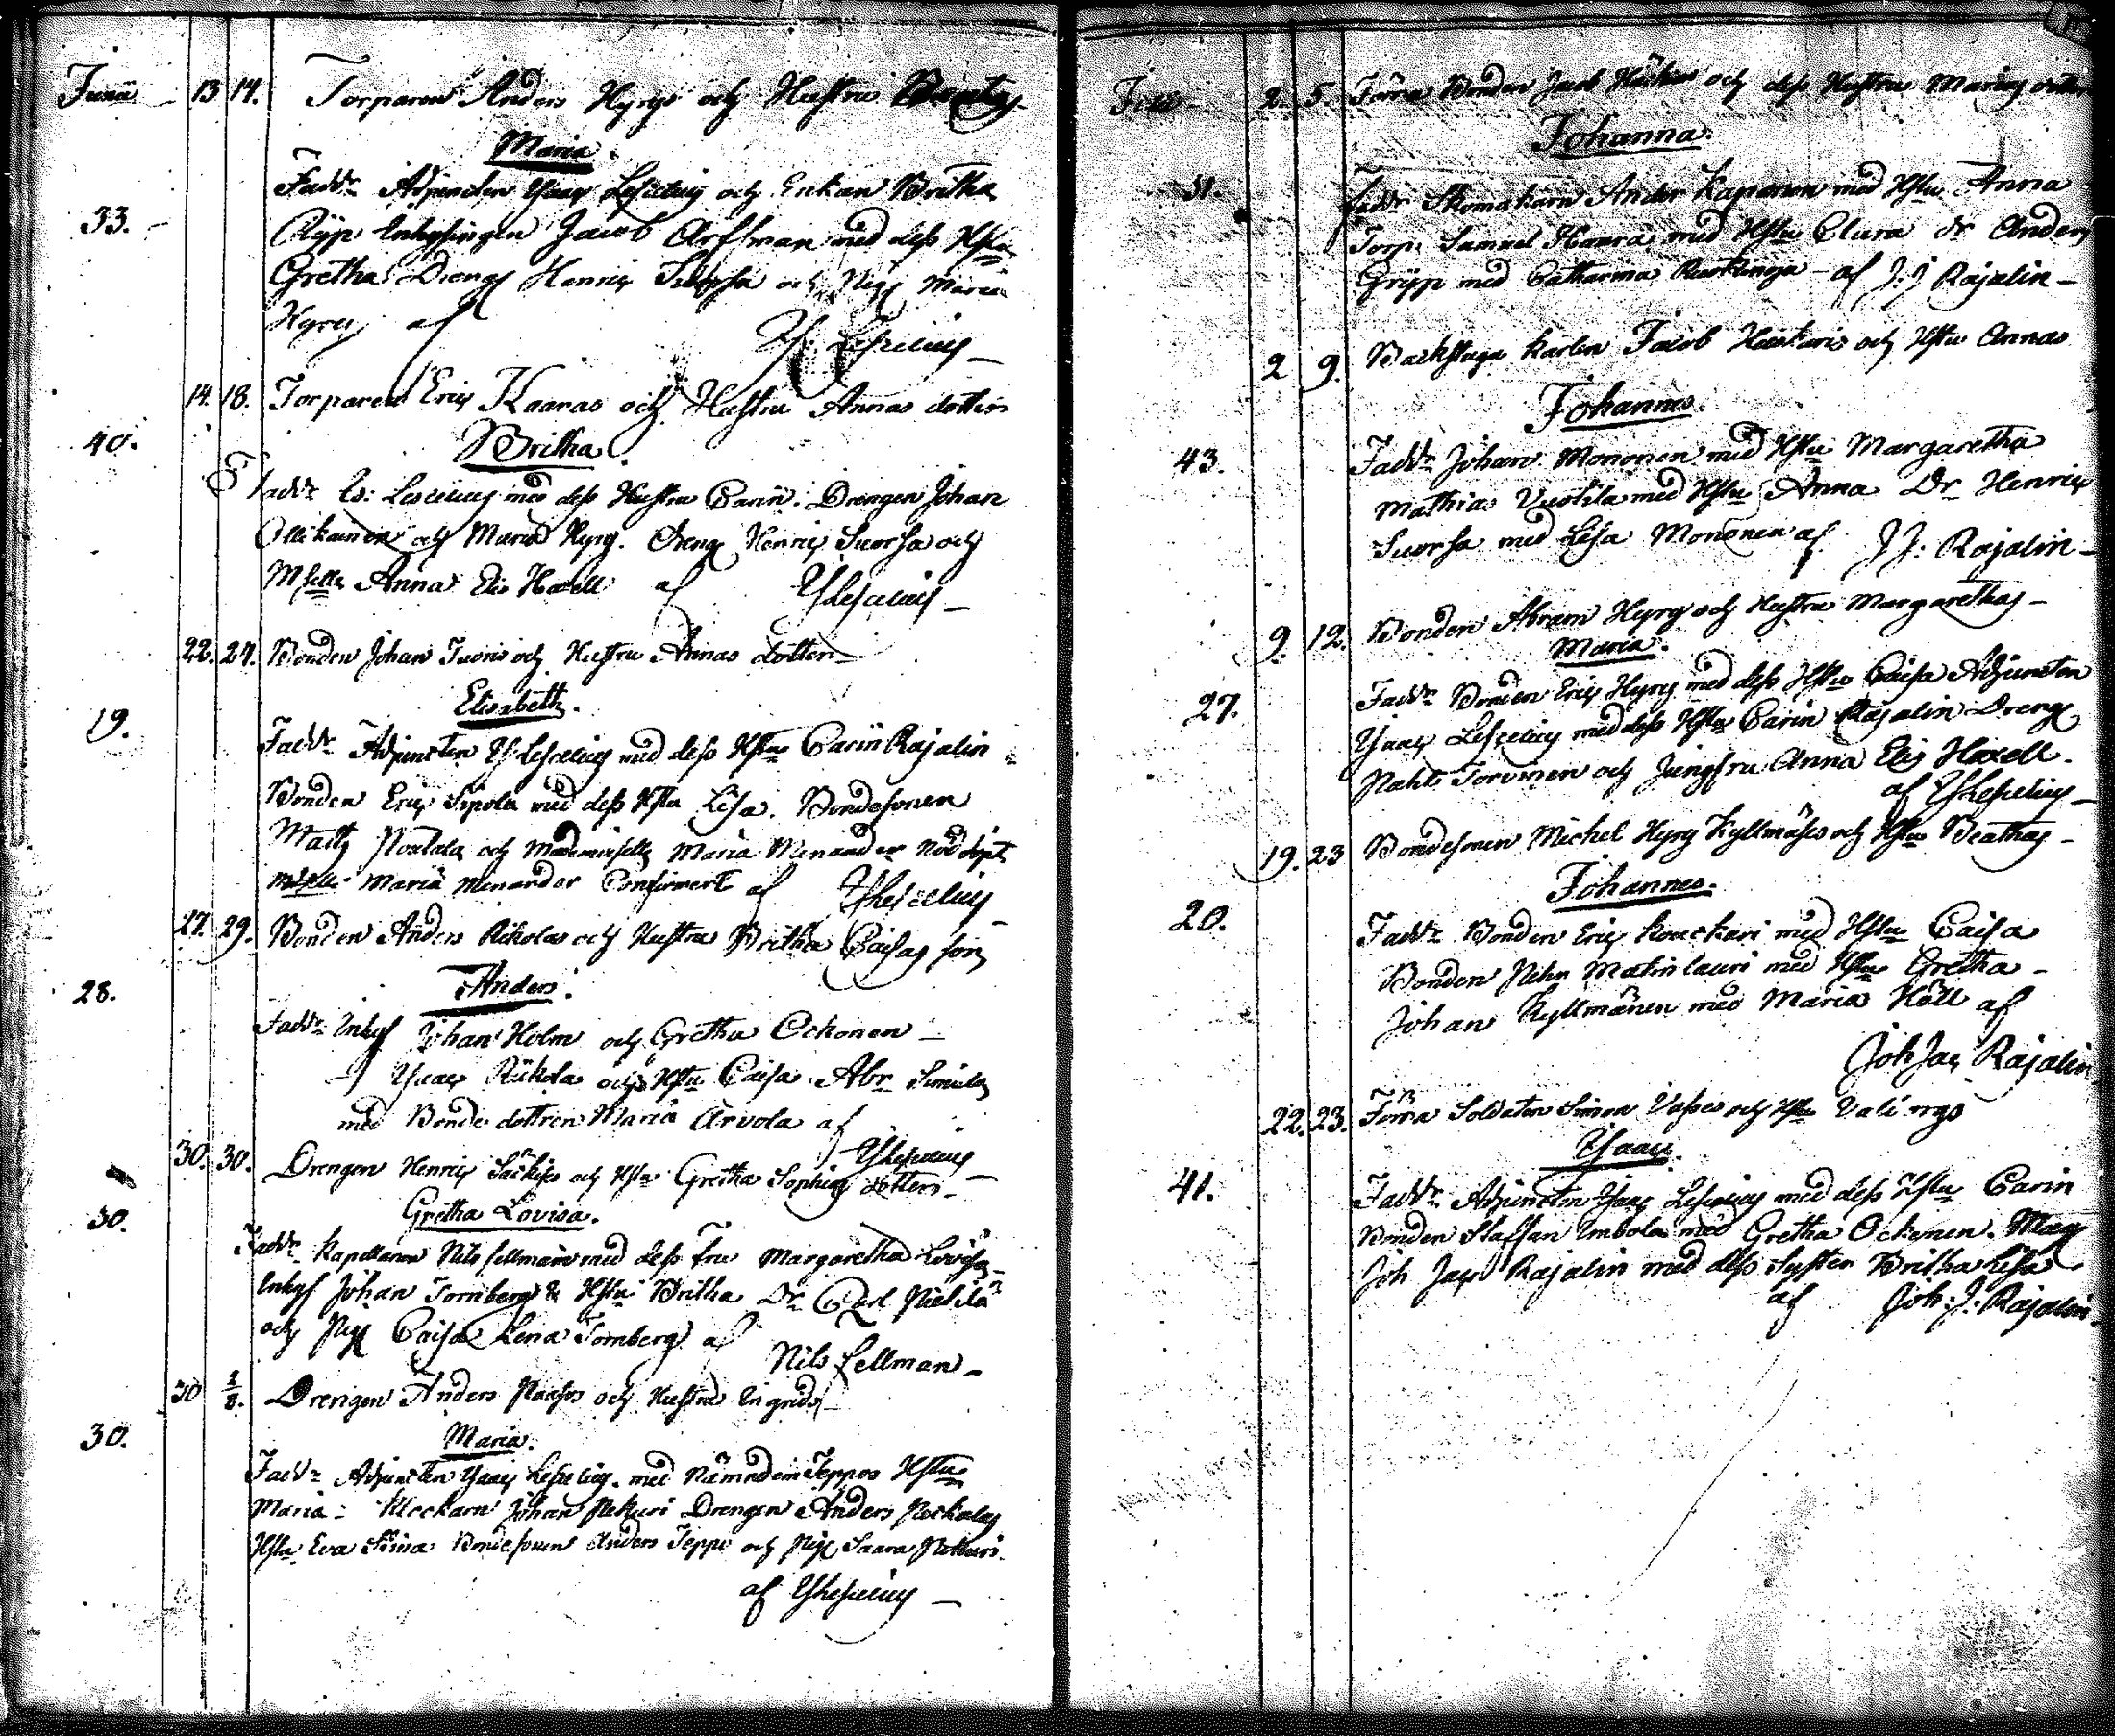 Junii 13 14. Torparens Anders Hyrys och Hustru
Maria.
Fadd:r Adjuncten Isaac Lescelius och Enkan Britha
33.
Ryp Inhysingen Jacob Arfman med dess Hstu
Gretha Dreng Henric Suorsa och Pig Maria
Hyry af
Is: Lescelius
14. 18. Torparen Eric Kaaras och Hustru Annas dotter
40.
Britha
Fadd:r Is: Lescelius med dess Hustru Carin. Drengen Johan
Ollikainen och Maria Hyry. Dreng Henric Suorsa och
Mselle Anna Elis Hoxell af Is Lescelius
22. 24. Bonden Johan Juoris och Hustru Annas dotter
Elisabeth.
19.
Fadd:r Adjuncten Is Lescelius med dess Hstu Carin Rajalin
Bonden Eric Sipola med dess Hstu Lisa. Bondesonen
Matts och Mademoiselle Maria Menander Nöd döpt
mselle Maria Menander Confirmert af Is Lescelius
27. 29. Bonden Anders Rikolas och Hustru Britha Caisas son
Anders.
28.
Fadd:r Inhys Johan Holm och Gretha Ockonen
Isaac Rikola och Hstu Caisa. Abr Simula
med Bonde dottren Maria Arvola af
Is Lescelius
30. 30. Drengen Henric Säckis och Hstu Gretha Sophias dotter
Gretha Lovisa.
30.
Fadd:r Kapellanen Nils Fellman med dess Fru Margaretha Lovisa
Inhys Johan Tornberg & Hstu Britha Dr Carl Nielilä
och Pig Caisa Lena Tornberg af
Nils Fellman
30 2/8. Drengen Anders Paasos och Hustru Ingrids
Maria.
30.
Fadd:r Adjuncten Isaac Lescelius med Nämndem Teppos Hstu
Maria Klockarn Johan Pekuri Drengen Anders
Hstu Eva Stina Bondesonen Anders Teppo och Pig Saara Pekuri
af Is Lescelius
2. 5. Förra Bonden Jacob och dess Hustru Marias dotter
Johanna.
31.
Fadd:r Skomakarn Ander Kaponen med Hstu Anna
Torp. Samuel Kaara med Hstu Clara Dr Anders
Grypp med Catharina af J: J Rajalin
2 9. Backstugu karlen Jacob Heiskaris och Hstu Annas
Johannes.
43.
Fadd:r Johan Mononen med Hstu Margaretha
Mathias Vuotila med Hstu Anna Dr Henric
Suorsa med Lisa Mononen af J J: Rajalin
9. 12. Bonden Abram Hyry och Hustru Margarethas
Maria.
27.
Fadd:r Bonden Eric Hyry med dess Hstu Caisa Adjuncten
Isaac Lescelius med dess Hstu Carin Rajalin Dreng
Mats Torvinen och Jungfru Anna Elis Hoxell.
af Is Lescelius
19. 23 Bondesonen Michel Hyry Kyllmäses och Hstu Beathas
Johannes.
20.
Fadd:r Bonden Eric Kouckari med Hstu Caisa
Bonden Pehr Matinlauri med Hstu Gretha
Johan Kyllmänen med Maria Häll af
Joh Jac Rajalin
22. 23. Förra Soldaten Simon Vasses och Hstu
Isaac.
41.
Fadd:r Adjuncten Isaac Lescelius med dess Hstu Carin
Bonden Staffan Imbola med Gretha Ockonen. Mag
Joh Jac Rajalin med dess Syster Britha Lisa
af Joh: J: Rajalin